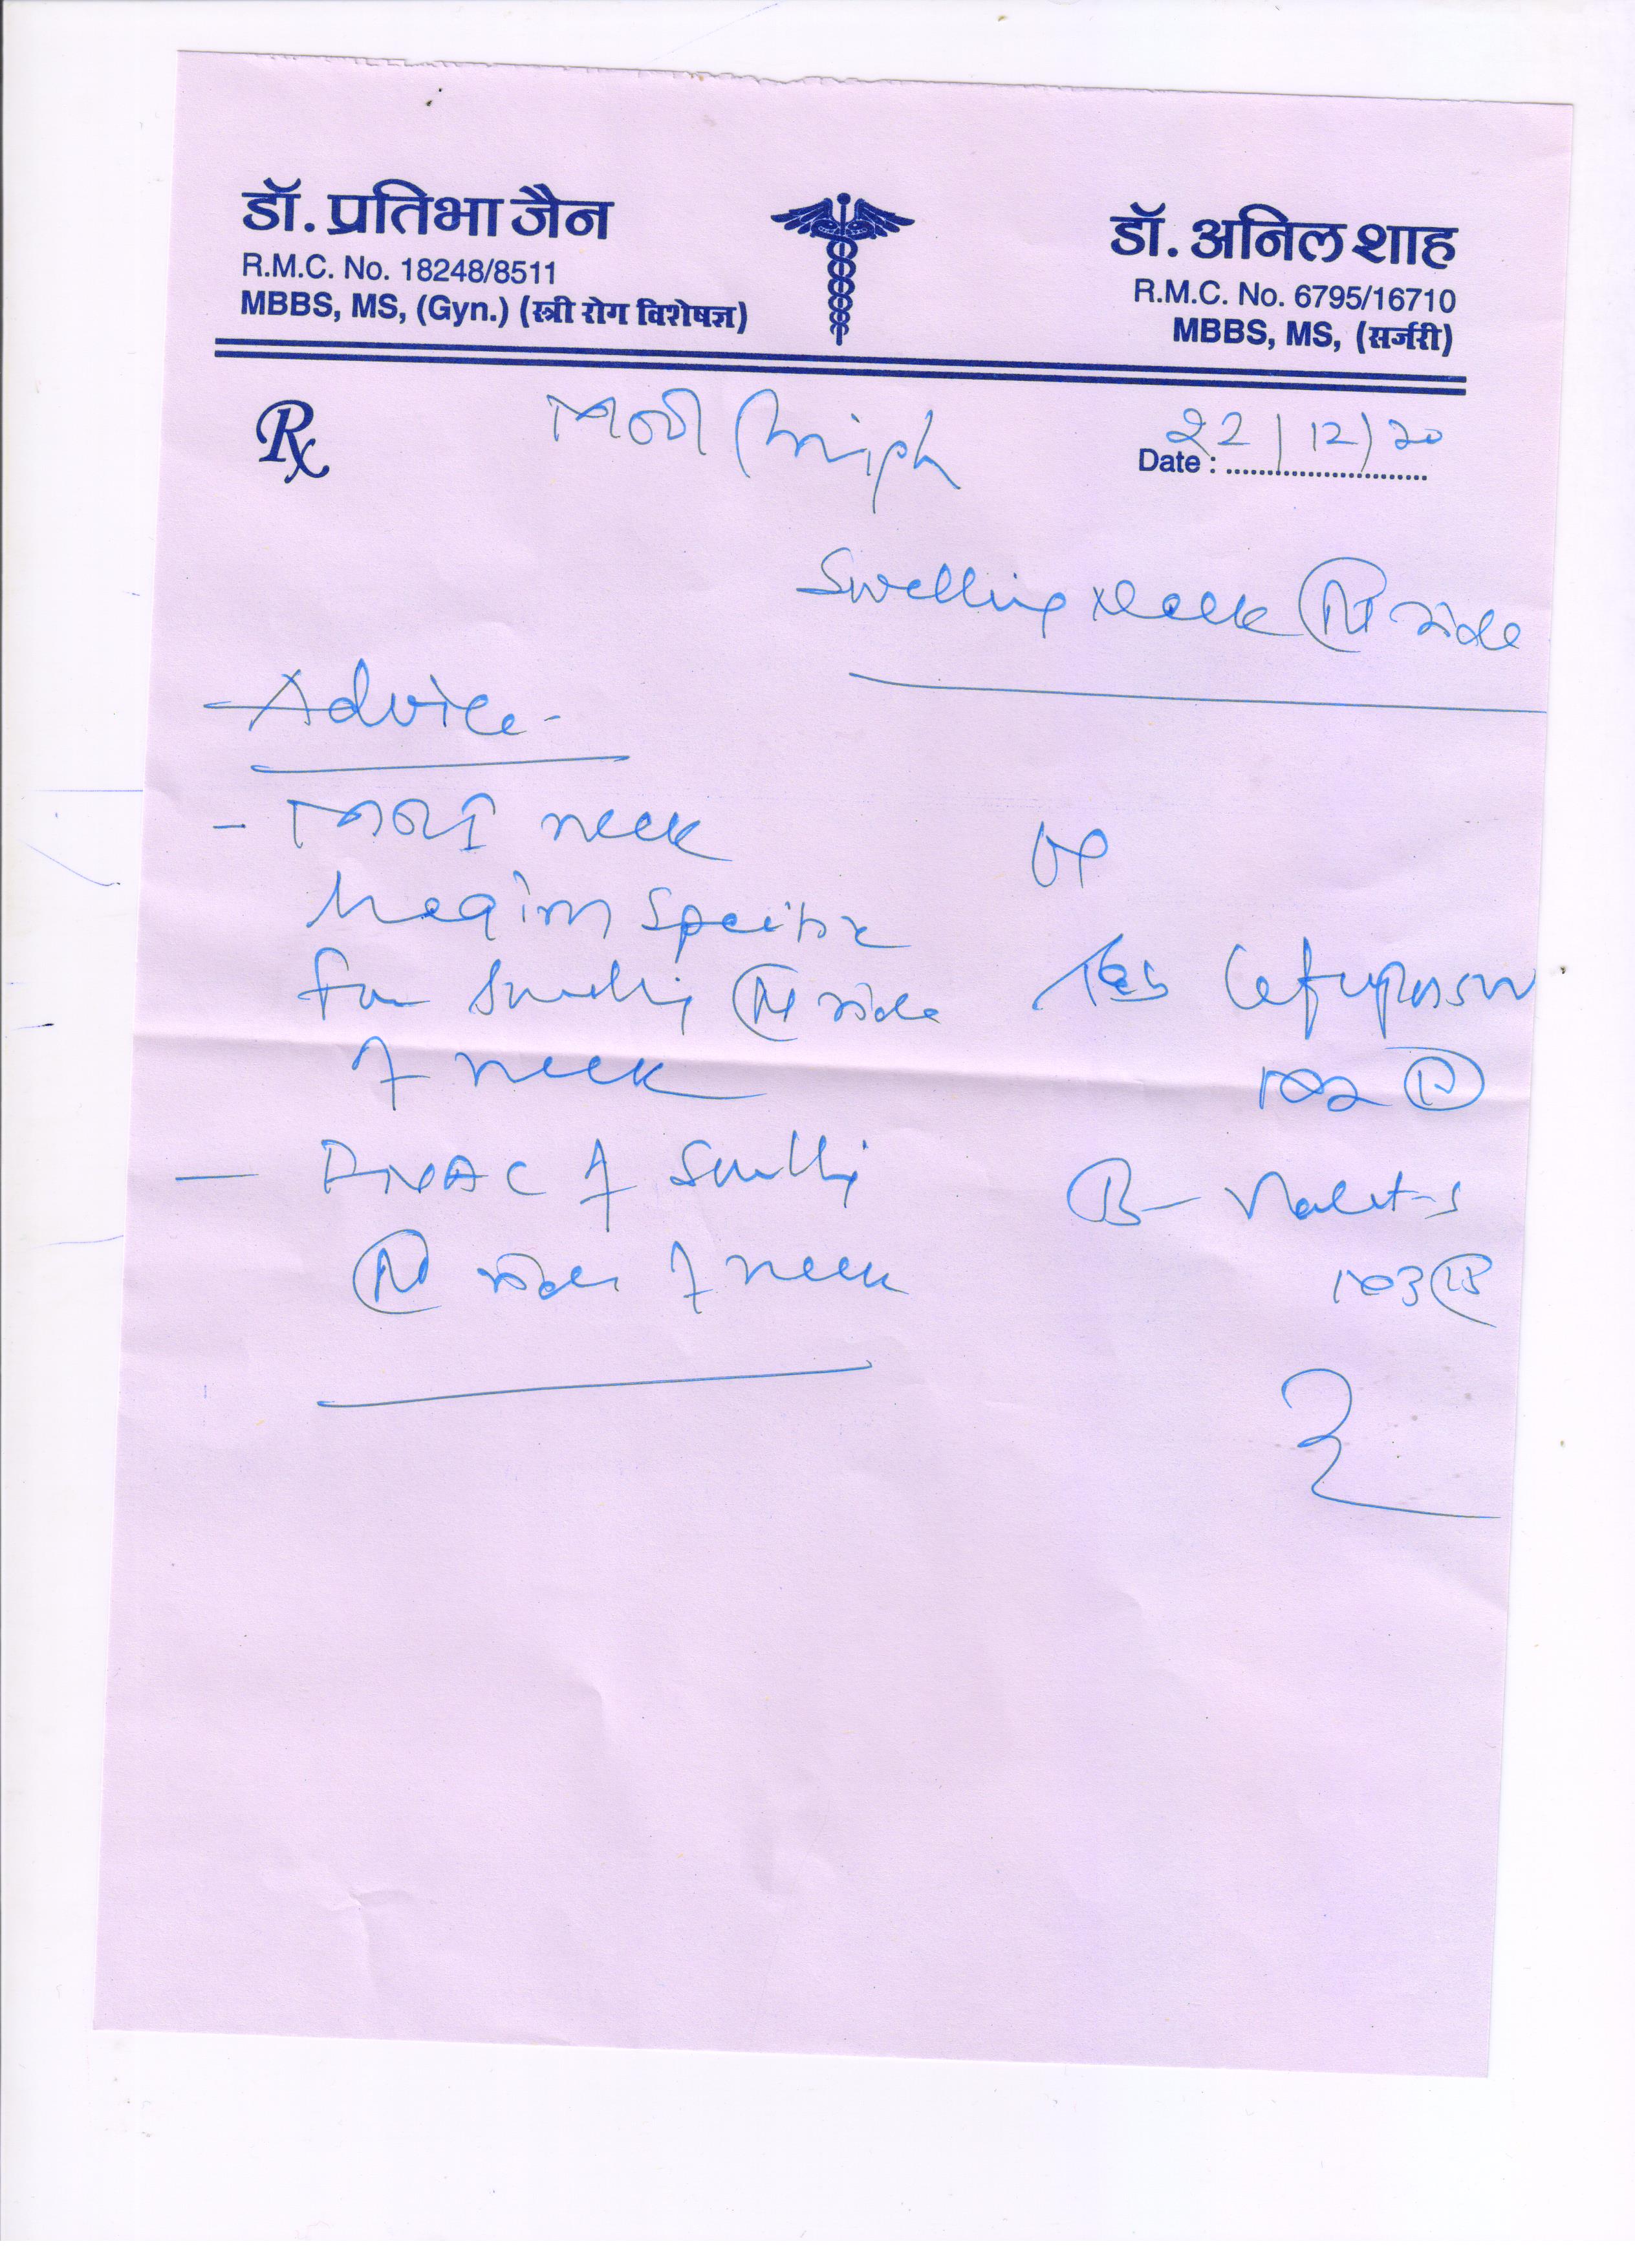 डॉ. प्रतिभा जैन
R.M.C. No. 18248/8511
MBBS, MS, (Gyn.) (स्त्री रोग विशेषज्ञ)
डॉ. अनिल शाह
R.M.C. No. 6795/16710
MBBS, MS, (सर्जरी)
Rx
Date : 22/12/20
Swelling neck Rt side
- Advice -
- MRI neck
Region Specific
for Swelling Rt side
of neck
- FNAC of Swelling
Rt side of neck
Tab
1x2
1x3